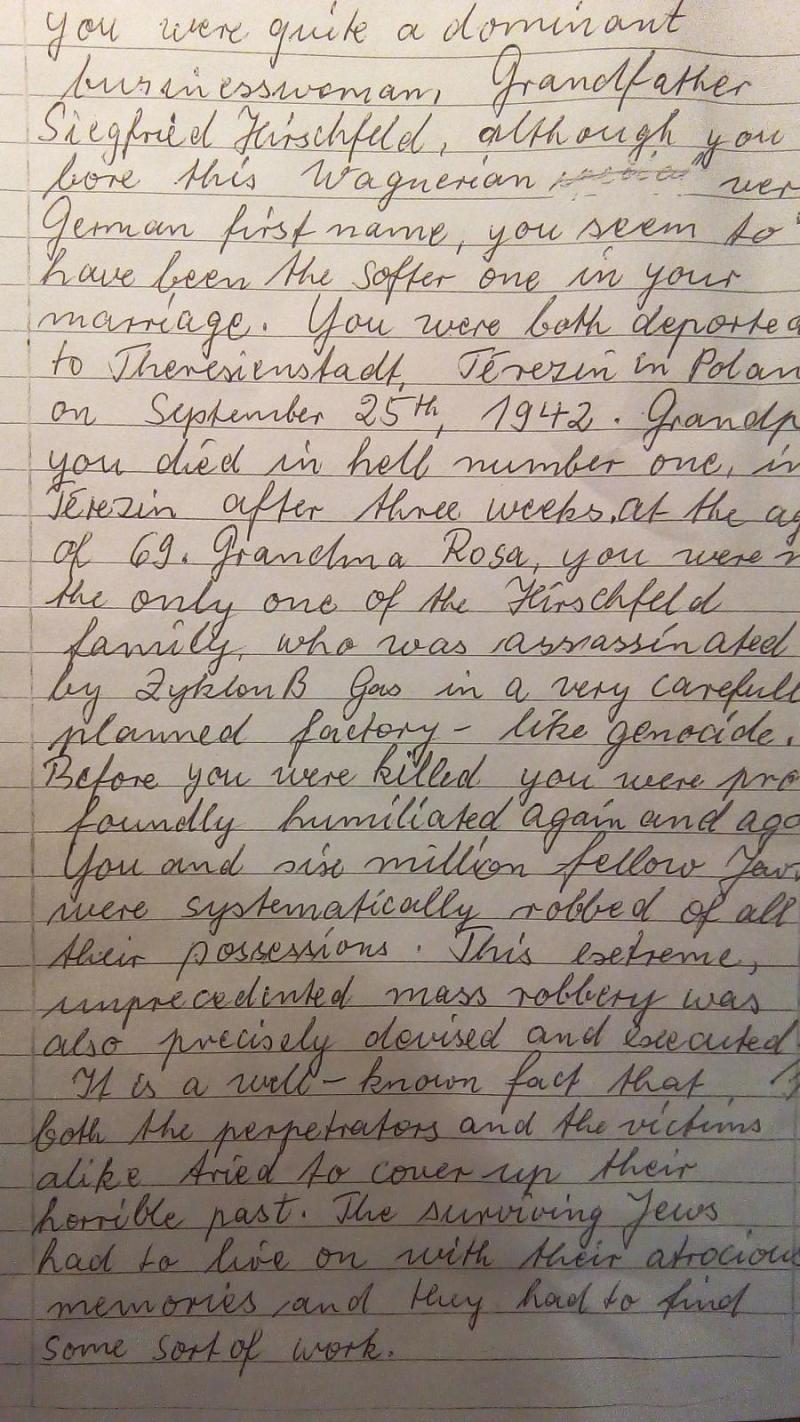 you were quite a dominant
businesswoman, Grandfather
Siegfried Hirschfeld, although you
bore this Wagnerian ver
German first name, you seem to
have been the softer one in your
marriage. You were both deported
to Theresienstadt, Térezin in Polan
on September 25th, 1942. Grandp
you died in hell number one, in
Térezin after three weeks, at the ag
of 69. Grandma Rosa, you were n
the only one of the Hirschfeld
family, who was assassinated
by Zyklon B Gas in a very carefull
planned factory-like genocide.
Before you were killed you were pro
foundly humiliated again and aga
You and six million fellow Jew
were systematically robbed of all
their possessions. This extreme,
unprecedented mass robbery was
also precisely devised and executed
It is a well-known fact that
both the perpetrators and the victims
alike tried to cover up their
horrible past. The surviving Jews
had to live on with their atrociou
memories and they had to find
some sort of work.